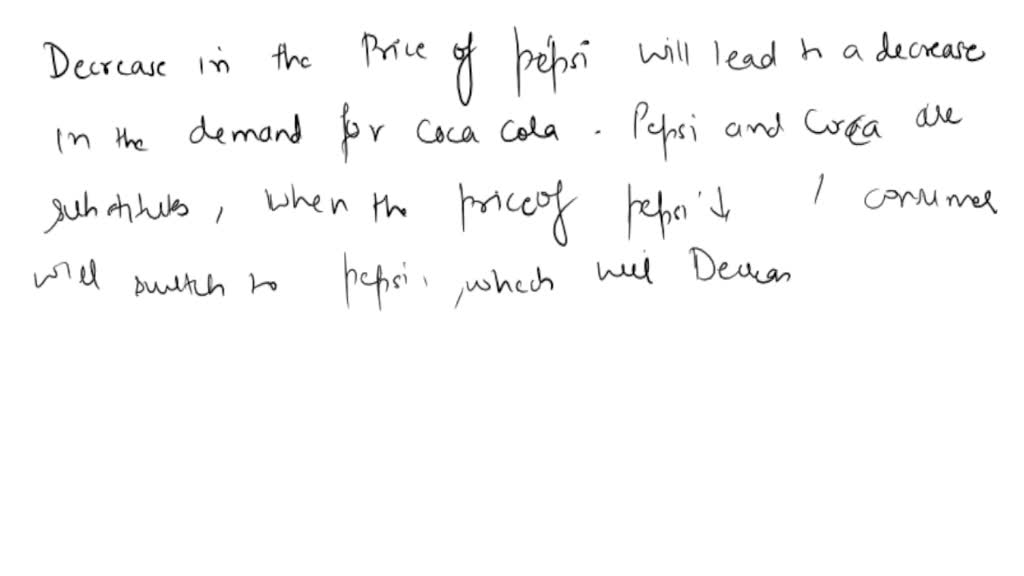 Decrease in the Price of pepsi will lead to a decrease
in the demand for coca cola. Pepsi and Coca are
substitutes, when the price of pepsi ↓, consumer
will switch to pepsi, which will Decreas